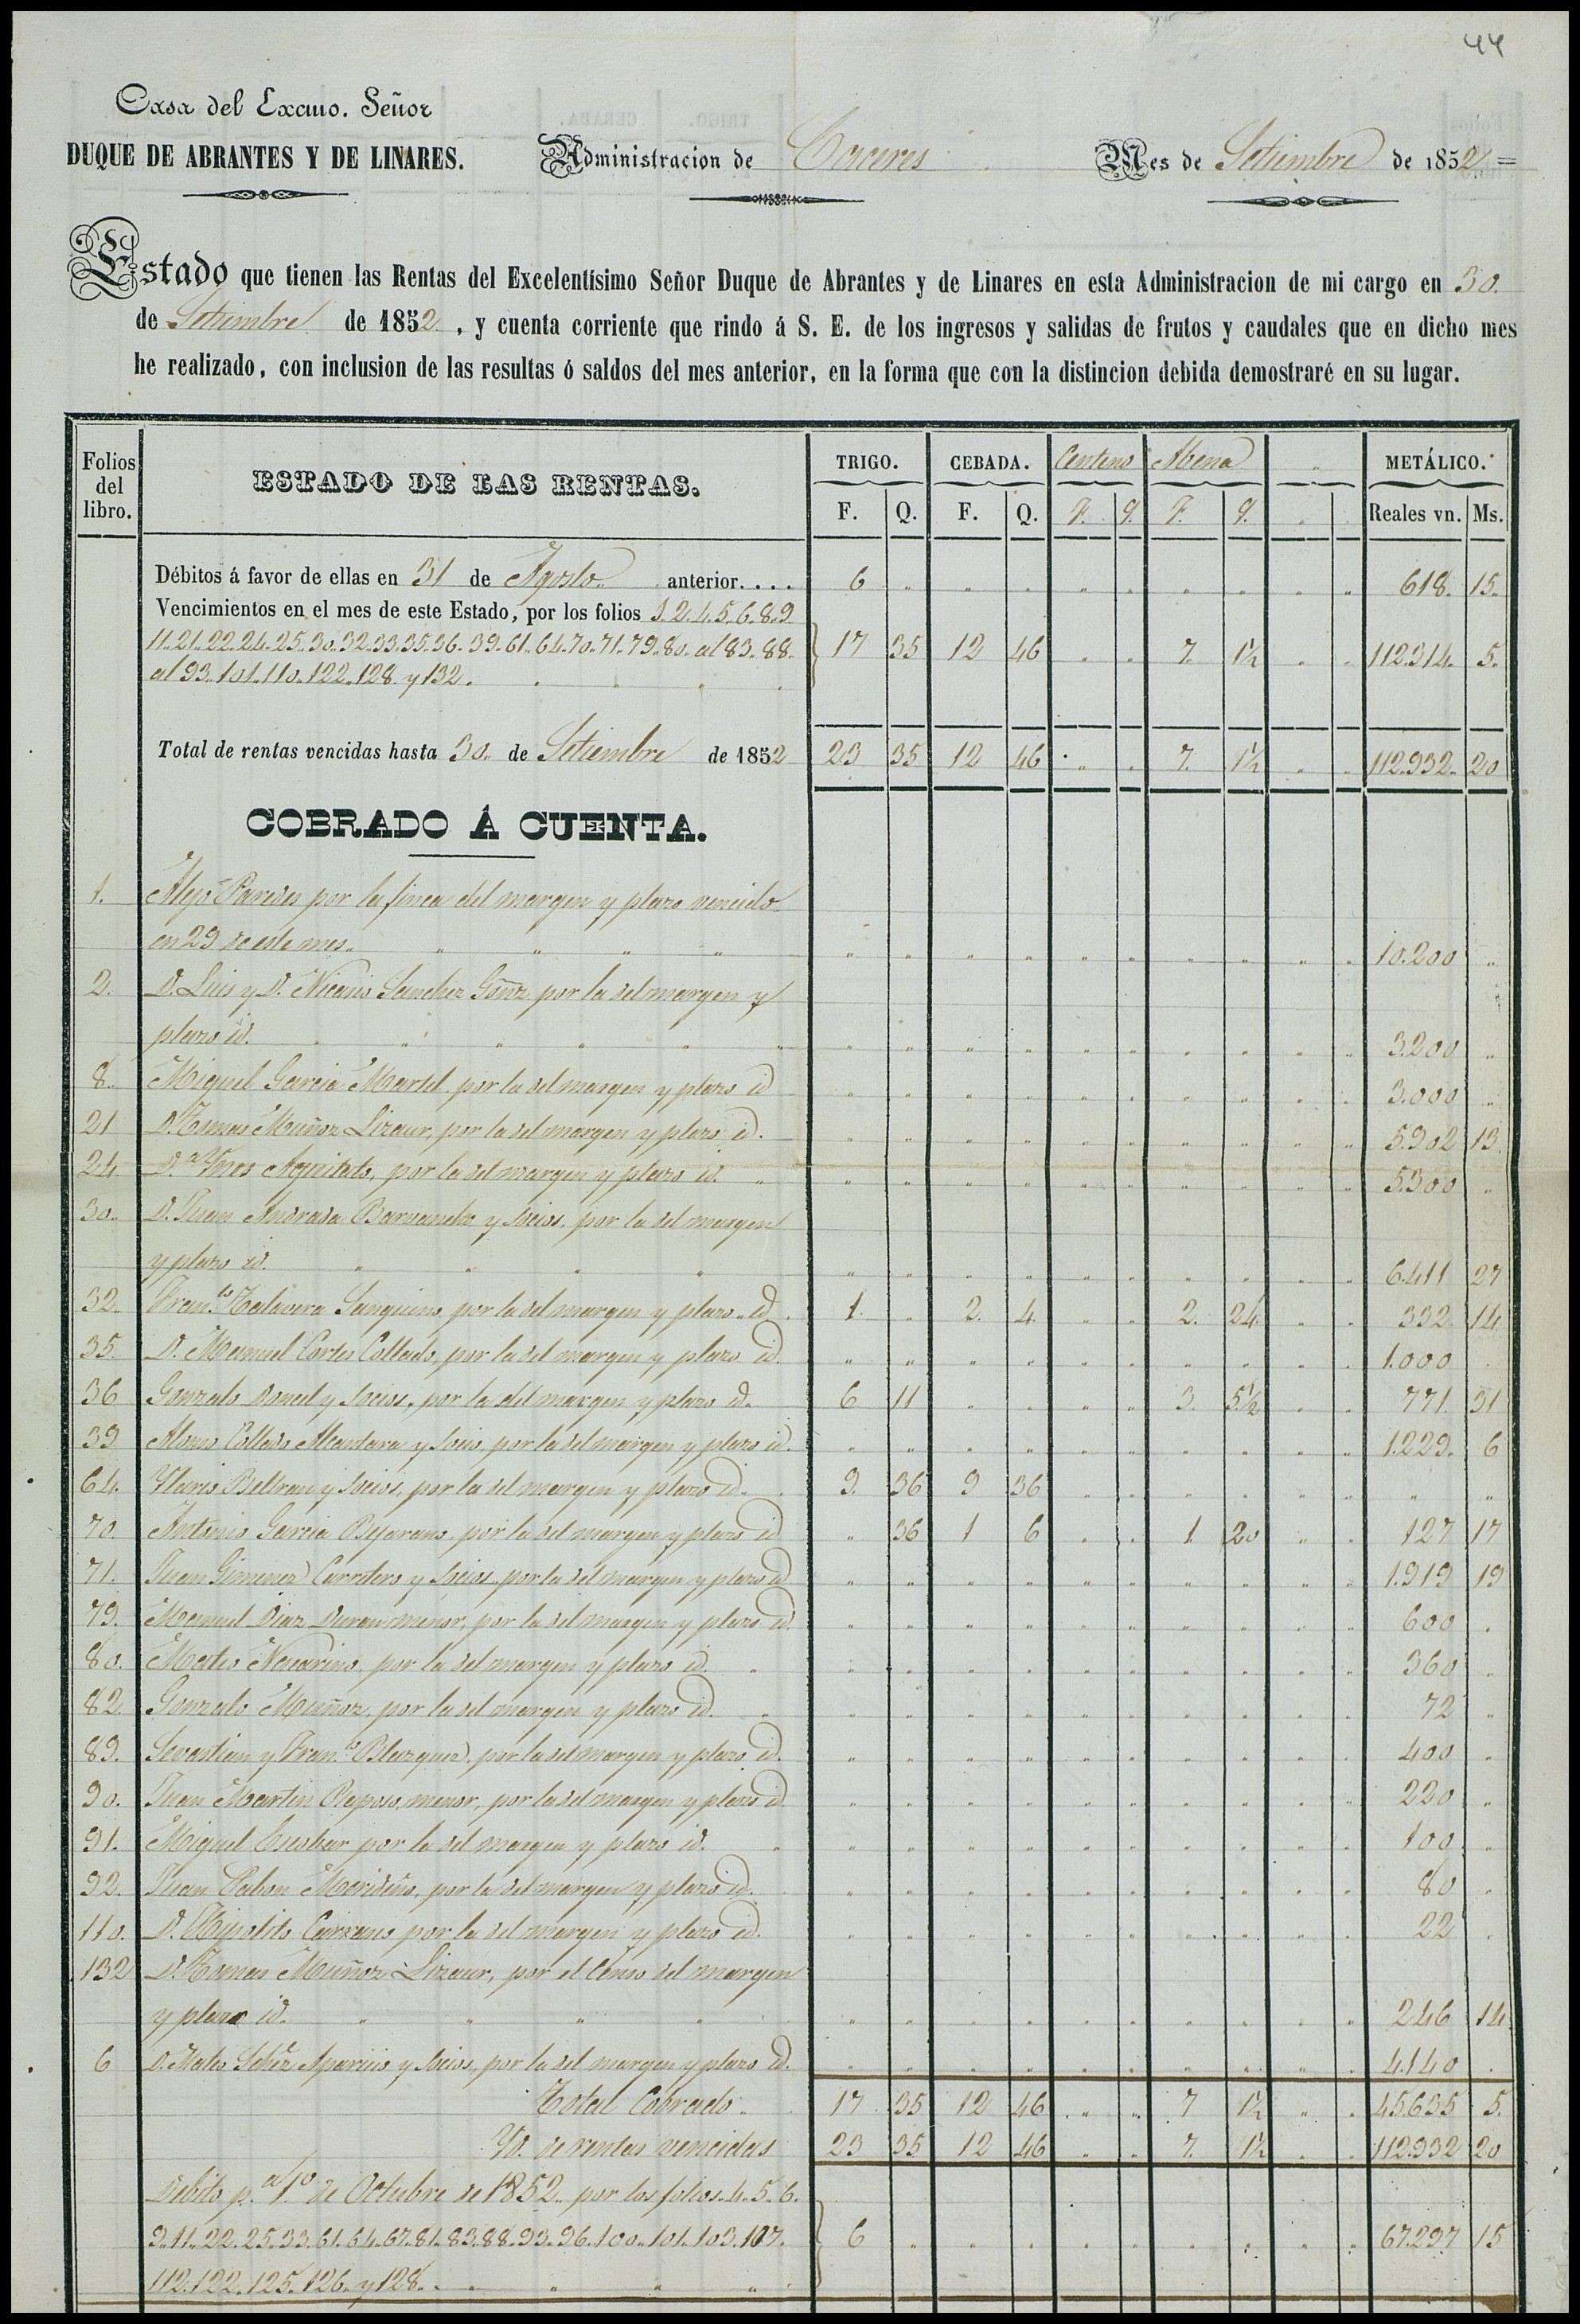 44
Casa del Excmo. Señor
DUQUE DE ABRANTES Y DE LINARES.
Administracion de Caceres
Mes de Setiembre de 1852=
Estado que tienen las Rentas del Excelentísimo Señor Duque de Abrantes y de Linares en esta Administracion de mi cargo en 30.
de Setiembre de 1852. , y cuenta corriente que rindo á S. E. de los ingresos y salidas de frutos y caudales que en dicho mes
he realizado, con inclusion de las resultas ó saldos del mes anterior, en la forma que con la distincion debida demostraré en su lugar.
Folios del libro. ESTADO DE LAS RENTAS. TRIGO. CEBADA. Centeno Abena " METÁLICO.
F. Q. F. Q. F. q. F. q. Reales vn. Ms.
Débitos á favor de ellas en 31 de Agosto. anterior.... 6 618. 15.
Vencimientos en el mes de este Estado, por los folios 1.2.4.5.6.8.9
11..21..22..24..25..30..32..33..35..36..39..61..64..70..71..79..80..al 83..88. 17 35 12 46 7. 1½ 112.314. 5.
al 93..101..110..122..128. y 132.
Total de rentas vencidas hasta 30. de Setiembre de 1852 23 35 12 46 7. 1½ 112.932. 20
COBRADO Á CUENTA.
1. Alejo Paredes por la finca del margen y plazo vencido
en 29 de este mes. 10.200
2. D. Luis y D. Nicanio Sanchez por la del margen y
plazo id. 3.200
8. Miguel Garcia Martel por la del margen y plazo id 3.000
21 D. Tomas Muñoz Lizaur, por la del margen y plazo id. 5.902 13.
24 D.ª Ynes , por la del margen y plazo id. 5.300
30. D. Juan Andrada y Socios, por la del margen
y plazo id. 6.411 27
32. Fran.co Talavera Sanguino por la del margen y plazo id 1. 2. 4. 2. 24. 332. 14
35. D. Manuel Cortes Collado, por la del margen y plazo id. 1.000
36 Gonzalo Doncel y Socios, por la del margen y plazo id. 6 11 3. 5½ 771. 31
39 Alonso Collado Alcantara y Socio, por la del margen y plazo id. 1.229. 6
64. Ylario Beltran y Socios, por la del margen y plazo id. 9. 36 9 36
70. Antonio Garcia Bejarano, por la del margen y plazo id 36 1 6 1. 20 127 17
71. Juan Gimenez Carretero y Socios, por la del margen y plazo id 1.919 19
79. Manuel Diaz Duran menor, por la del margen y plazo id. 600
80. Mateo Navarino, por la del margen y plazo id. 360
82. Gonzalo Muñoz, por la del margen y plazo id. 72
89. Sevastian y Fran.co Blazquez, por la del margen y plazo id. 400
90. Juan Martin Raposo, menor, por la del margen y plazo id 220
91. Miguel Escobar por la del margen y plazo id. 100
92. Juan Pabon Merideño, por la del margen y plazo id. 80
110. D. Hipolito Carrano por la del margen y plazo id. 22
132 D. Tomas Muñoz Lizaur, por el Censo del margen
y plazo id. 246 14
6 D. Mateo Aparicio y Socios, por la del margen y plazo id. 4.140
Total Cobrado. 17 35 12 46 7 1½ 45.635 5.
Yd. de rentas vencidas 23 35 12 46 7. 1½ 112.932 20
Debito p.ª 1º de Octubre de 1852. por los folios. 4. 5. 6.
9..11..22..25..33..61..64..67..81..83..88..93..96..100..101..103..107. 6 67.297 15
112.122..125..126. y 128.